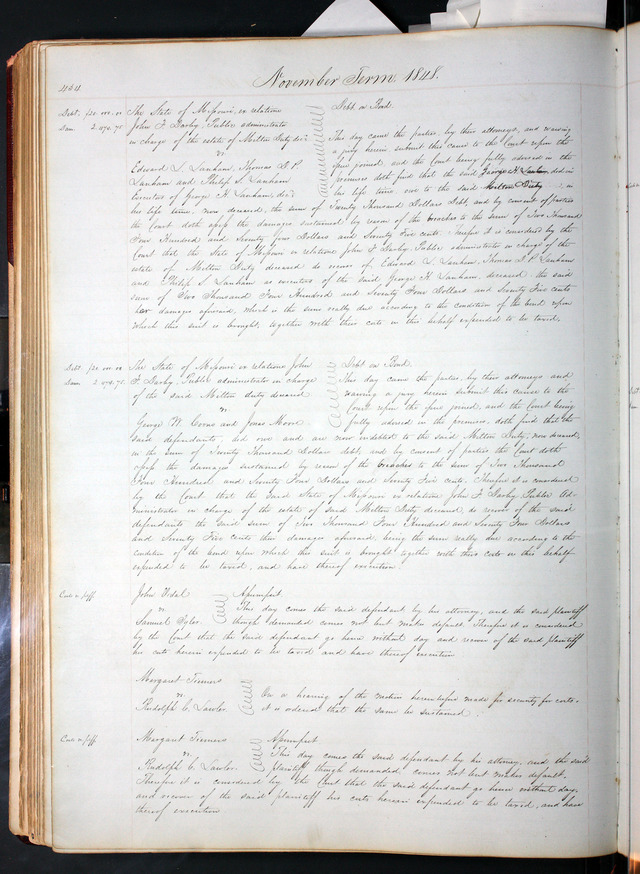 434
November Term 1848.
Debt. $20.000.00
Dam 2.474.75
The State of Missouri, ex relatione
John F. Darby, Public administrator
in charge of the estate of Milton Duty dec'd.
vs
Edward L. Lanham, Thomas S. P.
Lanham and Philip S. Lanham
Executors of George H. Lanham, dec'd
Debt on Bond.
This day came the parties, by their attorneys, and waiving
a jury herein submit this cause to the Court upon the
issue joined, and the Court being fully advised in the
premises doth find that the said George H. Lanham, did in
his life time, owe to the said Milton Duty in
his life time, now deceased, the sum of Twenty Thousand Dollars Debt, and by consent of parties
the Court doth assess the damages sustained by reason of the breaches to the sum of Two Thousand
Four Hundred and Seventy four Dollars and Seventy Five cents. Therefore it is considered by the
Court that the State of Missouri ex relatione John F. Darby, Public administrator in charge of the
estate of Milton Duty deceased do recover of Edward L. Lanham, Thomas S. P. Lanham
and Philip S. Lanham as executors of the said George H. Lanham, deceased the said
sum of Two Thousand Four Hundred and Seventy Four Dollars and Seventy Five cents
her damages aforesaid, which is the sum really due according to the condition of the bond upon
which this suit is brought, together with their costs in this behalf expended to be taxed.
Debt $20.000.00
Dam 2.474.75.
The State of Missouri ex relatione John
F. Darby, Public administrator in charge
of the said Milton Duty deceased
vs
George W. Coons and Jonas Moore
Debt on Bond.
This day came the parties, by their attorneys and
waiving a jury herein submit this cause to the
Court upon the issue joined, and the Court being
fully advised in the premises, doth find that the
said defendants, did owe and are now indebted to the said Milton Duty, now deceased,
in the sum of Twenty Thousand Dollars debt, and by consent of parties the Court doth
assess the damages sustained by reason of the breaches to the sum of Two Thousand
Four Hundred and Seventy Four Dollars and Seventy Five cents. Therefore it is considered
by the Court that the said State of Missouri ex relatione John F. Darby Public Ad-
ministrator in charge of the estate of said Milton Duty deceased, do recover of the said
defendants the said sum of Two Thousand Four Hundred and Seventy Four Dollars
and Seventy Five cents their damages aforesaid, being the sum really due according to the
condition of the bond upon which this suit is brought together with their costs in this behalf
expended to be taxed, and have thereof execution.
Costs vs plff.
John Udal
vs
Samuel Tyler.
Assumpsit
This day comes the said defendant by his attorney, and the said plaintiff
though demanded comes not but makes default. Therefore it is considered
by the Court that the said defendant go hence without day and recover of the said plaintiff
his costs herein expended to be taxed and have thereof execution
Margaret
vs
Rudolph C. Lawler.
On a hearing of the motion heretofore made for security for costs.
it is ordered that the same be sustained.
Costs vs plff
Margaret
vs.
Rudolph C. Lawler.
Assumpsit
This day comes the said defendant by his attorney, and the said
plaintiff though demanded comes not but makes default.
Therefore it is considered by the Court that the said defendant go hence without day,
and recover of the said plaintiff his costs herein expended to be taxed, and have
thereof execution.